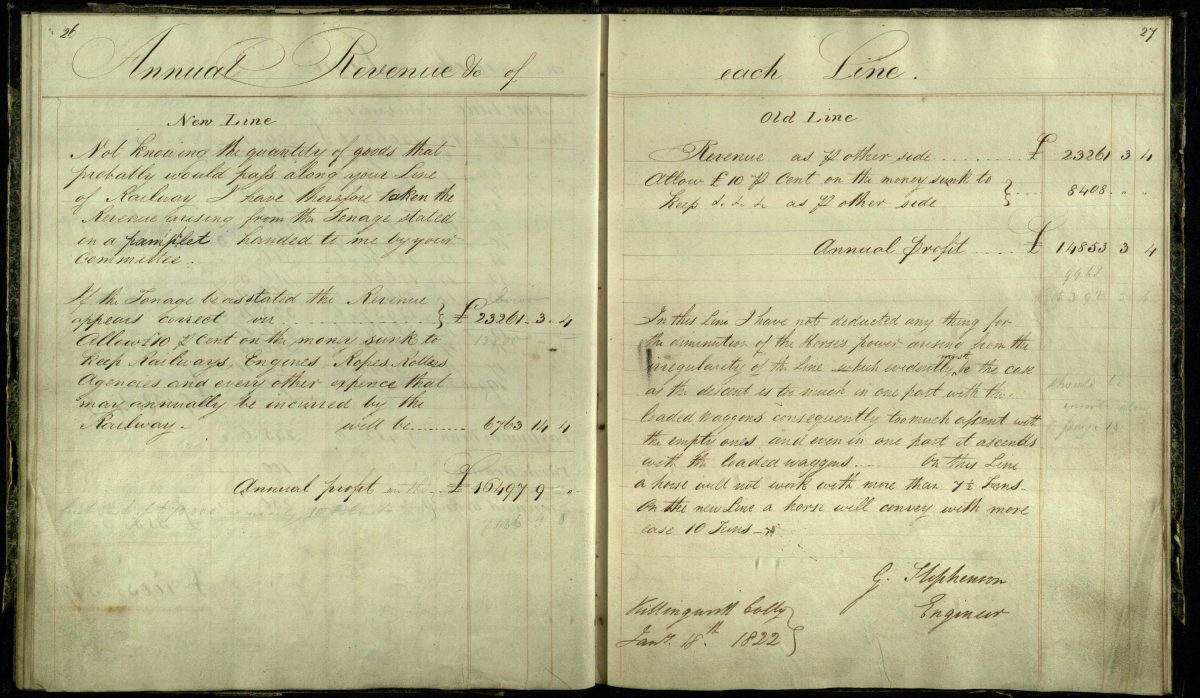 26
Annual Revenue &c of
New Line
Not knowing the quantity of goods that
probably would pass along your Line
of Railway I have therefore taken the
Revenue arising from the Tonage stated
in a pamplet handed to me by your
Committee.
If the Tonage be as stated the Revenue
appears correct £ 23261 - 3 - 4
Allow £10 ⅌ Cent on the money sunk to
keep Railways, Engines, Ropes Rollers
Agencies and every other expence that
may annually be incured by the
Railway - will be 6763 14 4
Annual profit £ 16497 9 "
7436 3 8
27
each Line.
Old Line
Revenue as ⅌ other side £ 23261 3 4
Allow £10 ⅌ Cent on the money sunk to
keep &. &. &. as ⅌ other side 8408 " "
Annual profit £ 14853 3 4
In this Line I have not deducted any thing for
the diminution of the horses power arising from the
irregularity of the Line which evidently must be the case
as the descent is too much in one part with the
loaded waggons consequently too much ascent with
the empty ones and even in one part it ascends
with the loaded waggons On this Line
a horse will not work with more than 7½ Tuns -
On the new Line a horse will convey with more
ease 10 Tuns -
should be
G. Stephenson
Engineer
Killingworth Colly
Jany. 18th. 1822